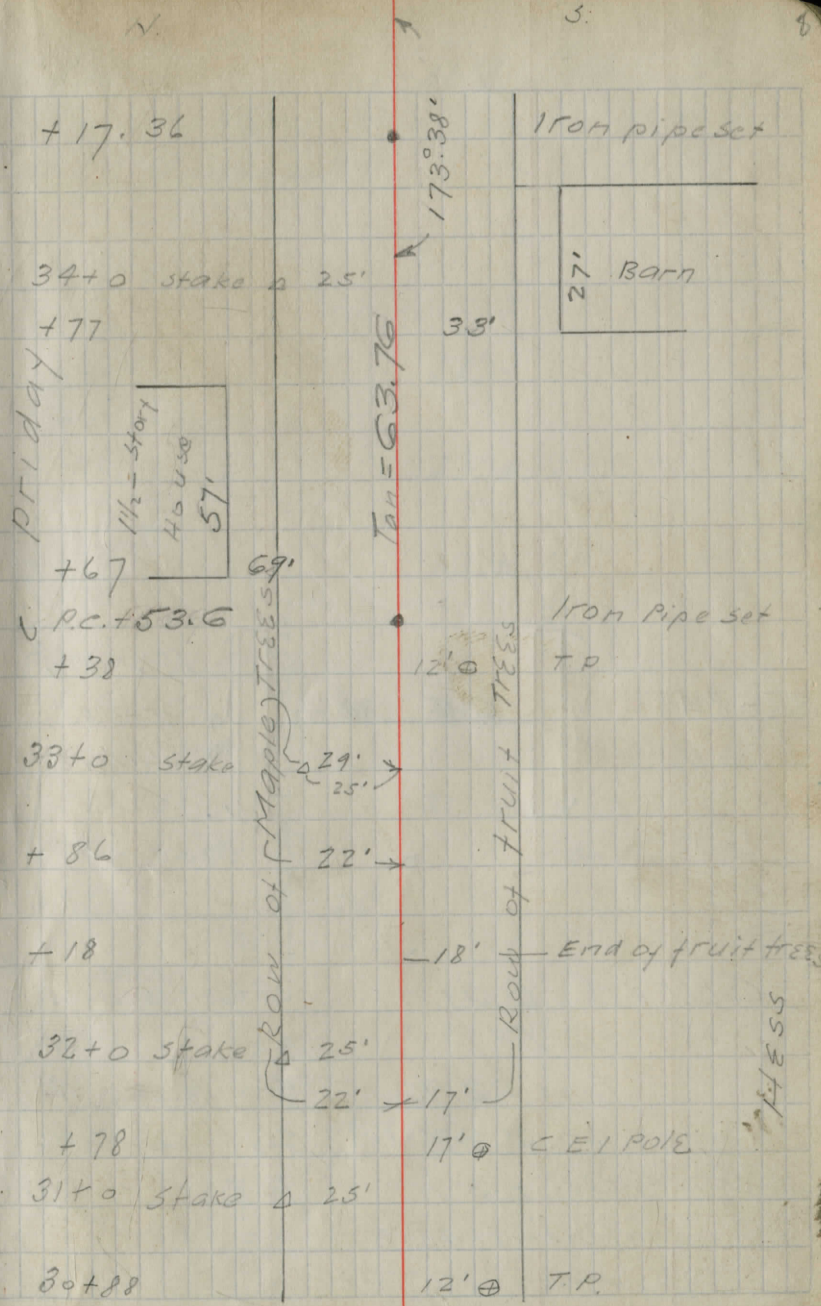 N. S. 8
+17.36 Iron pipe set
173°38'
34+0 stake 25' 27' Barn
+77 33'
Tan = 63.76
Priday
1 1/2 = Story
House
57'
+67 69'
P.C. +53.6 Iron Pipe set
+38 12' T.P.
33+0 stake 29'
25'
+86 22'
Row of Maple Trees
Row of fruit Trees
+18 18' End of fruit trees
32+0 stake 25'
22' 17'
HESS
+78 17' C E I Pole
31+0 stake 25'
30+88 12' T.P.